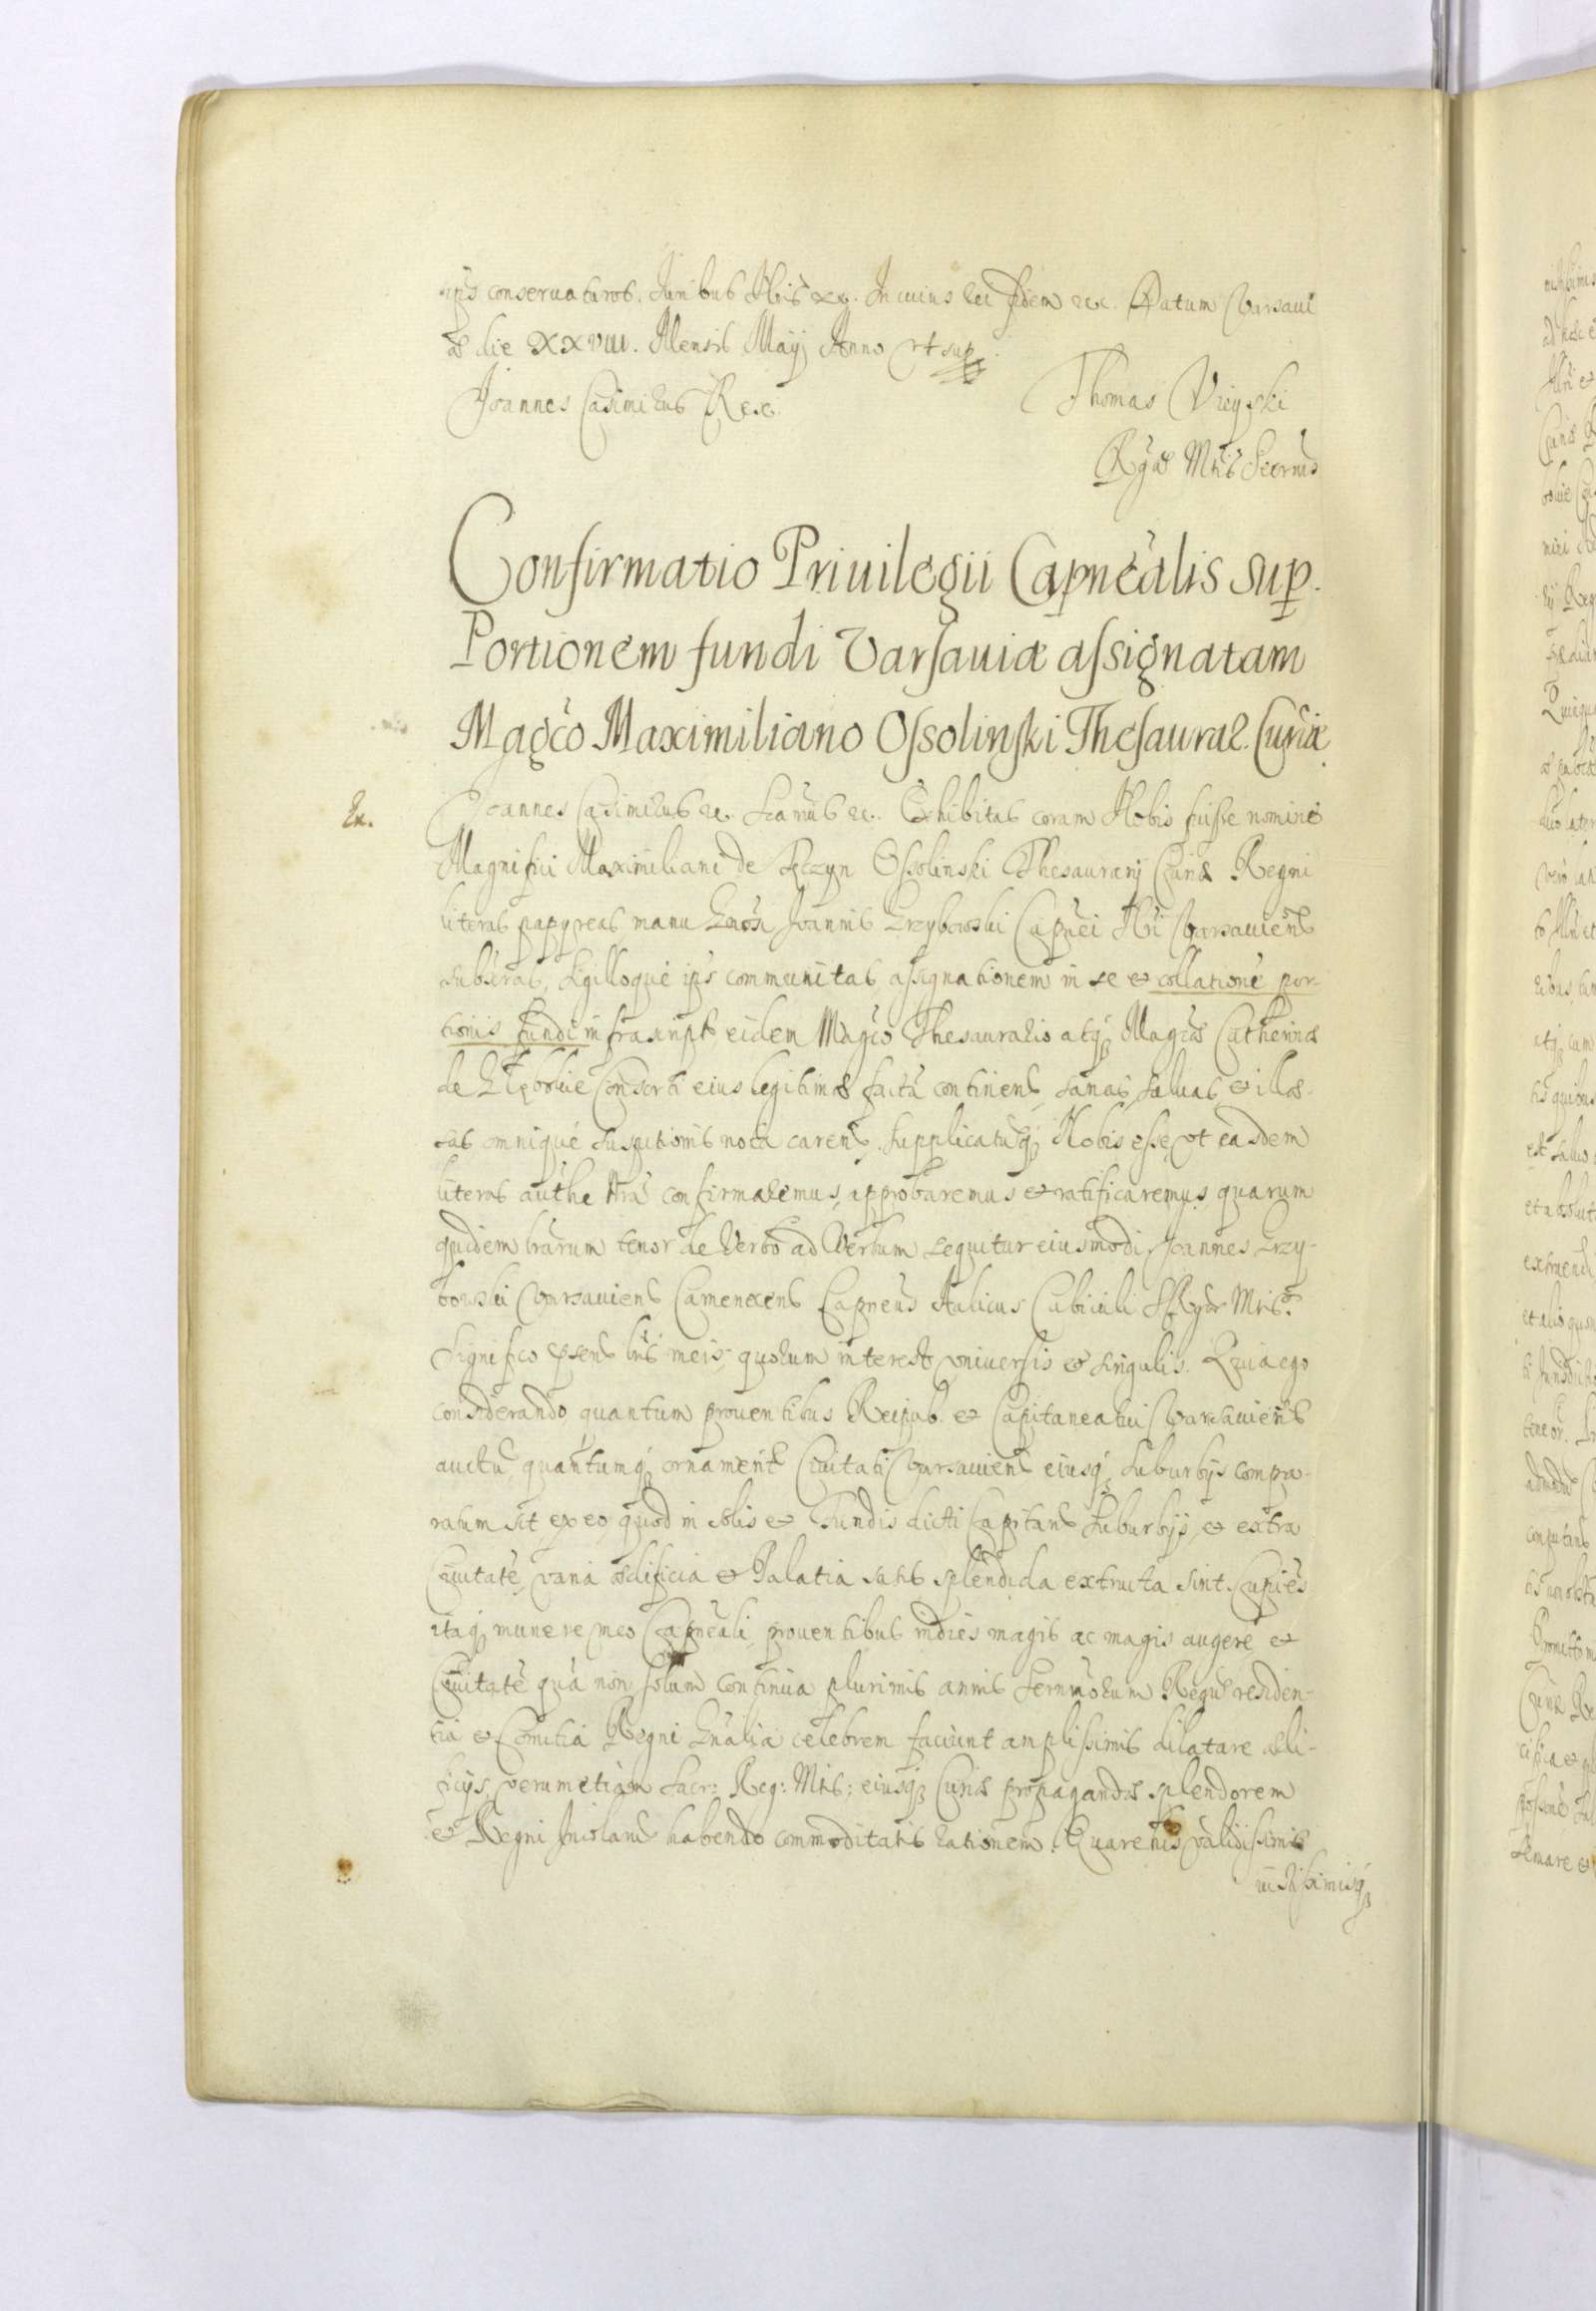 ips conseruaturos. Iuribus Nris etc. In cuius rei fidem etc. Datum Varsaui
æ die XXVIII. Mensis Maij Anno ut sup.
Joannes Casimirus Rex
Thomas Vieyski
Rgæ Mtis Secrius
Confirmatio Priuilegii Capnealis sup.
Portionem fundi Varsauiæ assignatam
Magco Maximiliano Ossolinski Thesaurar. Curiæ
Ex.
Joannes Casimirus etc. Exhibitas coram Nobis fuisse nomine
Magnifici Maximiliani de Tęczyn Ossolinski Thesaurarij Curiæ Regni
literas papyreas manu Gnosi Joannis Grzybowski Capnei Nri Varsauiens
subscras, sigilloque ips communitas assignationem in se et collatione por-
tionis fundi infrascript eidem Magco Thesaurario atq Magcæ Catherinæ
de Consorti eius legitimæ facta continens, sanas, saluas et illæ-
sas omnique suspitionis nota carens. Supplicatuq Nobis esse, ut easdem
literas authe Nra confirmaremus, approbaremus et ratificaremus, quarum
quidem lrarum tenor de verbo ad verbum sequitur eiusmodi. Joannes Grzy-
bowski Varsauiens Camenecens Capneus Aulicus Cubiculi S Rgæ Mtis.
Significo psens lris meis, quorum interest, vniuersis et singulis. Quia ego
considerando quantum prouentibus Reipub. et Capitaneatui Varsauiens
auctu, quantumq ornament Ciuitati Varsauiens eiusq suburbijs compa-
ratum sit ex eo, quod in solis et fundis dicti Capitans suburbijs et extra
Ciuitate varia ædificia et Palatia satis splendida extructa sint. Cupies
itaq munere meo Capneali prouentibus indies magis ac magis augere et
Ciuitate qua non solum continua plurimis annis Sernmorum Regu residen-
tia et Comitia Regni Gnalia celebrem faciunt amplissimis dilatare ædi-
ficijs, verum etiam Sacr: Reg: Mtis; eiusq Curiæ propagandæ splendorem
et Regni Incolaru habendo commoditatis rationem. Quare his validissimis
iustissimisq